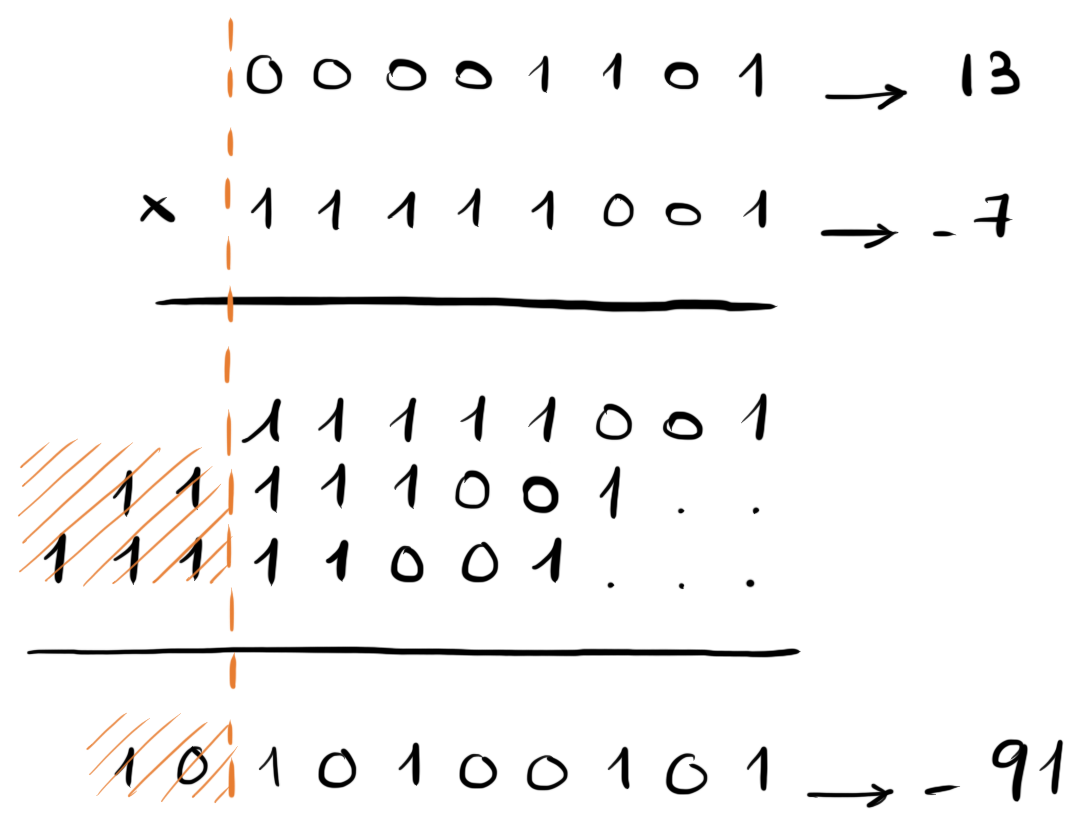 0 0 0 0 1 1 0 1 → 13
× 1 1 1 1 1 0 0 1 → - 7
1 1 1 1 1 0 0 1
1 1 1 1 1 0 0 1 . .
1 1 1 1 1 0 0 1 . . .
1 0 1 0 1 0 0 1 0 1 → - 91